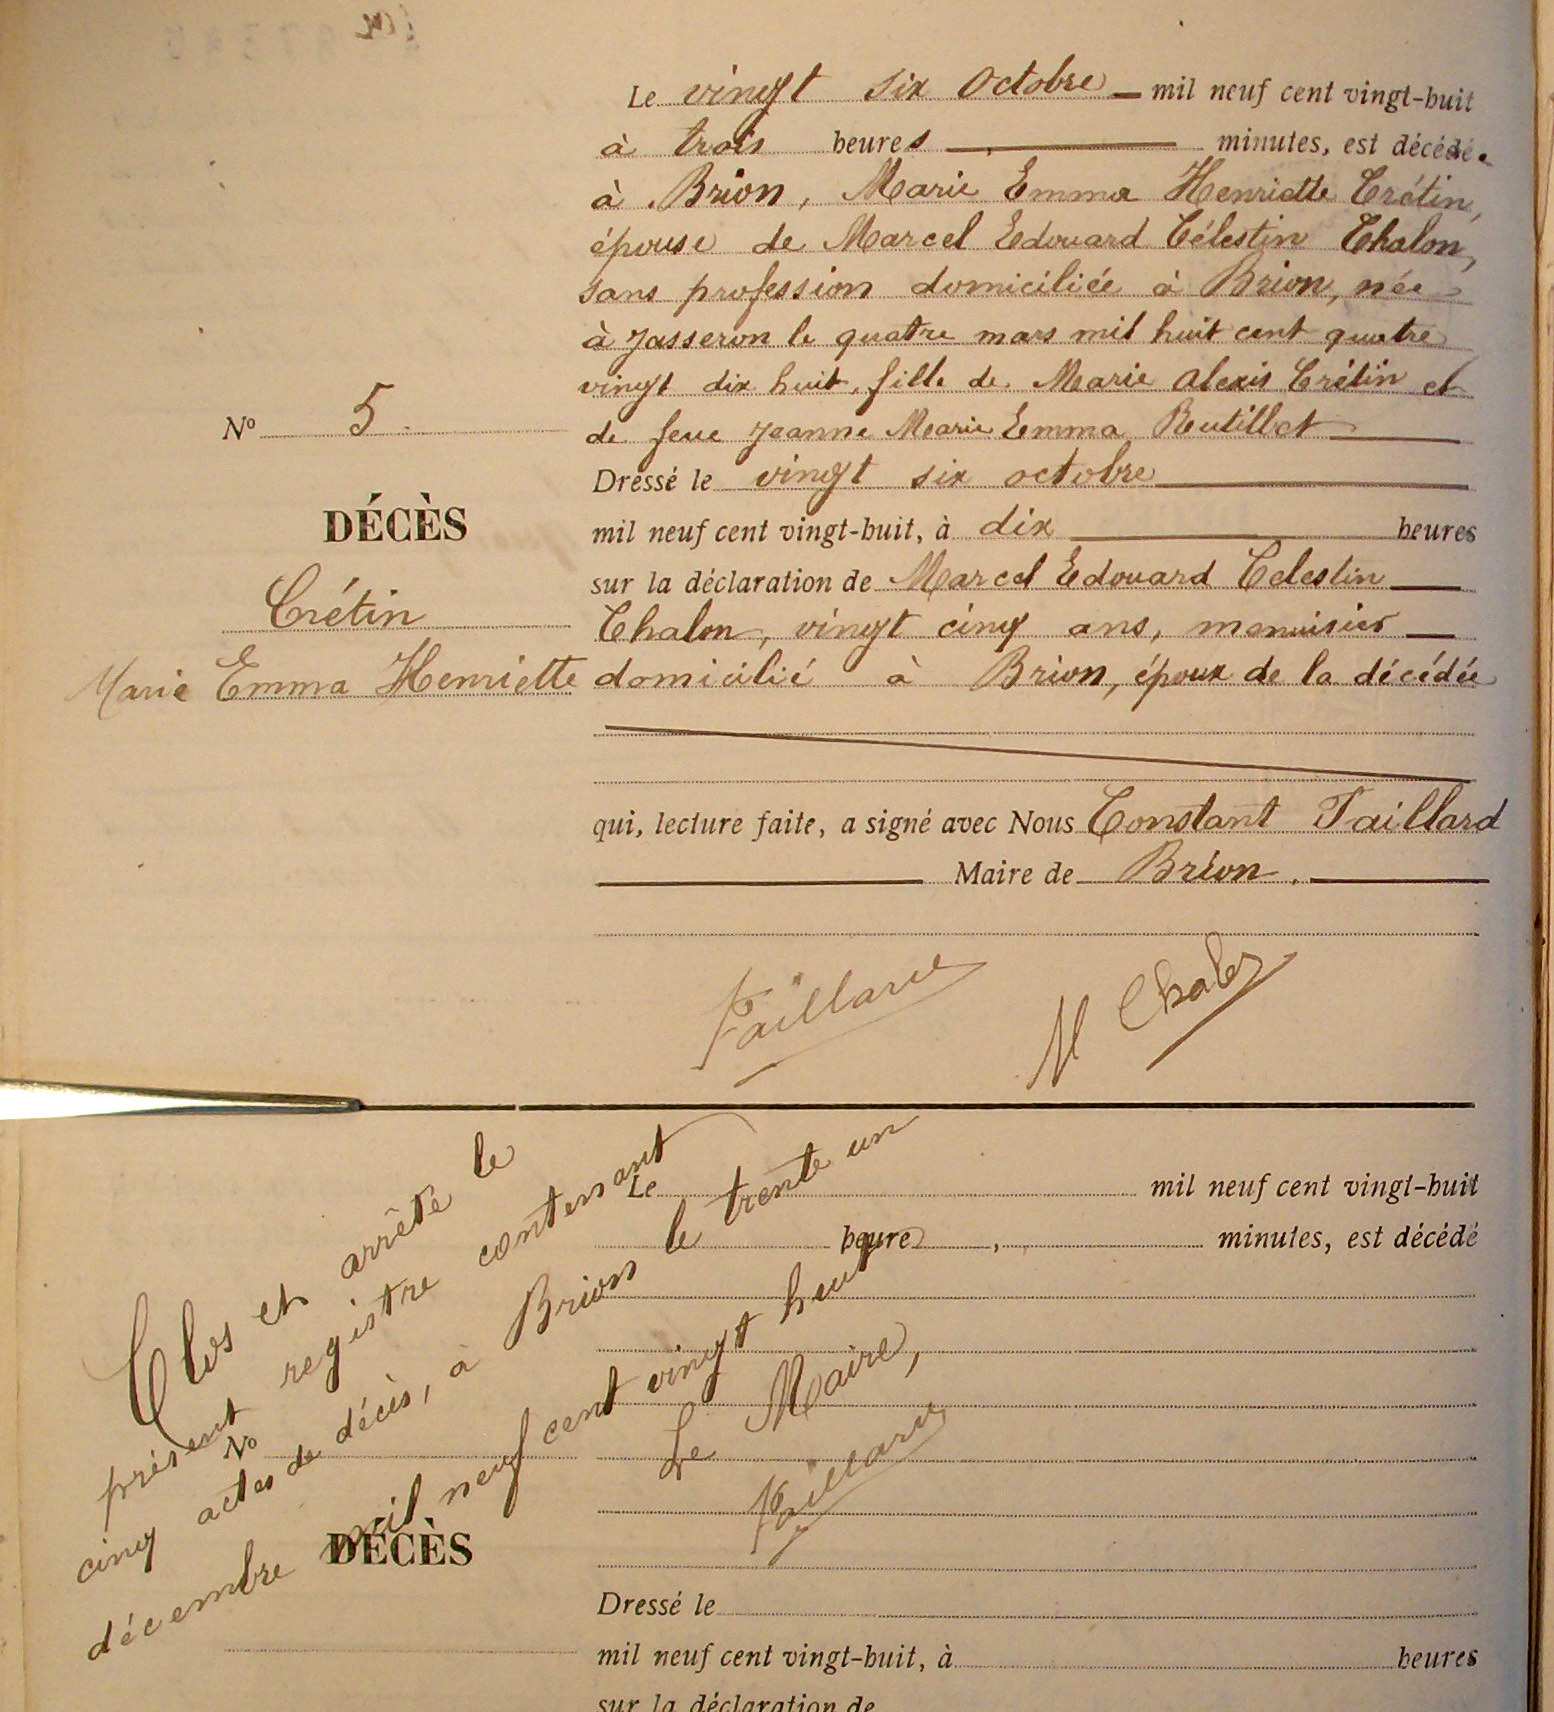 Le vingt six Octobre mil neuf cent vingt-huit
à trois heures , minutes, est décédée
à Brion, Marie Emma Henriette Crétin,
épouse de Marcel Edouard Célestin Chalon,
sans profession domiciliée à Brion, née
à Jasseron le quatre mars mil huit cent quatre
vingt dix huit, fille de Marie Alexis Crétin et
de feue Jeanne Marie Emma Rutillet
Dressé le vingt six octobre
mil neuf cent vingt-huit, à dix heures
sur la déclaration de Marcel Edouard Celestin
Chalon, vingt cinq ans, menuisier
domicilié à Brion, époux de la décédée
qui, lecture faite, a signé avec Nous Constant Taillard
Maire de Brion.
Taillard M Chalon
No 5
DÉCÈS
Crétin
Marie Emma Henriette
Clos et arrêté le
présent registre contenant
cinq actes de décès, à Brion le trente un
décembre mil neuf cent vingt huit
Le Maire,
Taillard
Le mil neuf cent vingt-huit
heure , minutes, est décédé
No
DÉCÈS
Dressé le
mil neuf cent vingt-huit, à heures
sur la déclaration de